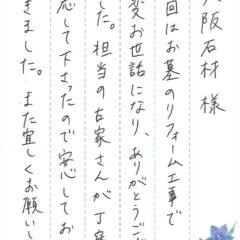 大阪石材 様
回はお墓のリフォーム工事で
変お世話になり、ありがとうござ
した。担当の古家さんが丁寧
応して下さったので安心してお
きました。また宜しくお願いし